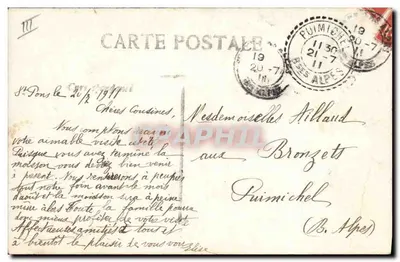 III
CARTE POSTALE
19
20-7
11
PUIMICHEL
11 30
21-7
11
Bses ALPES
19
20-7
St Pons le 20/7 1911
Chères Cousines,
Nous comptons sur
votre aimable visite
Puisque vous avez terminé la
moisson vous devez bien venir
à présent. Nous rentrerons à peu près
tout notre foin avant le mois
d'août et la moisson sera à peine
mûre alors. Toute la famille pourra
donc mieux profiter de votre visite
Affectueuses amitiés à tous et
à bientôt le plaisir de vous voir
Mesdemoiselles Aillaud
aux Bronzets
Puimichel
(B. Alpes)